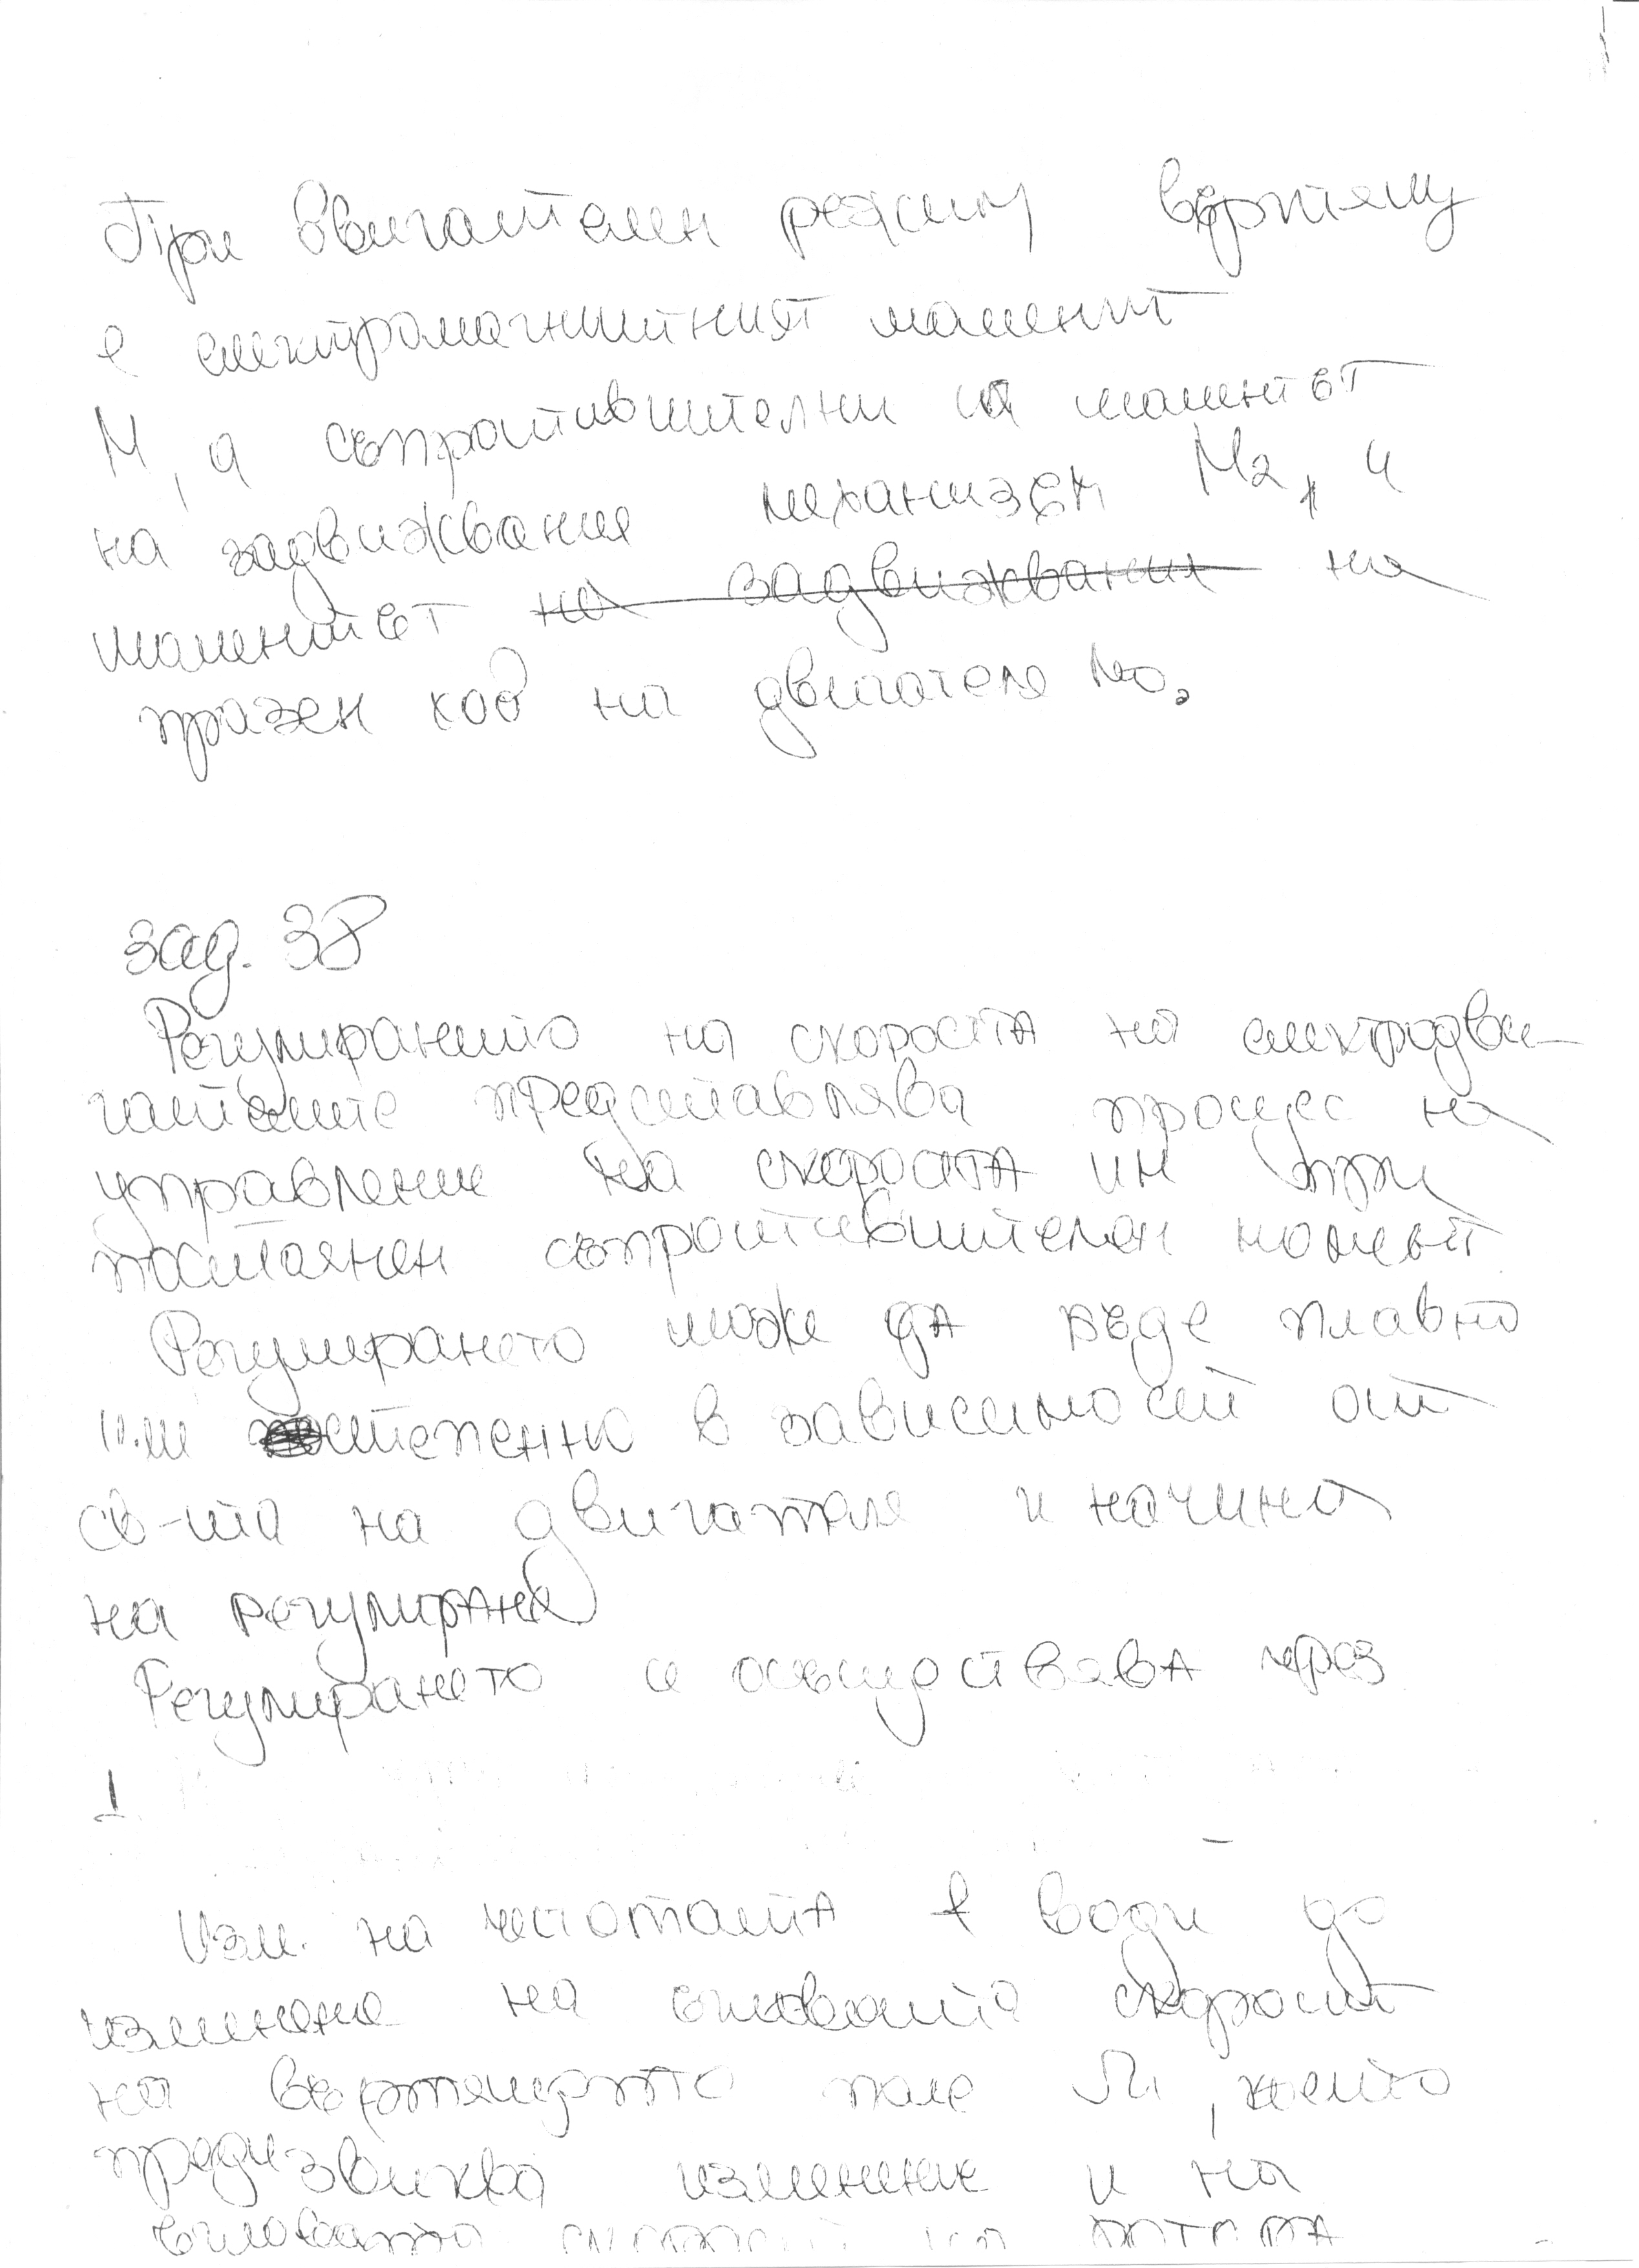 При двигателен режим въртящ
е електромагнитният момент
М, а съпротивителни са моментът
на задвижвания механизъм М2, и
моментът на задвижвания на
празен ход на двигателя Мо.
зад. 38
Регулирането на скоростта на електродви-
гателите представлява процес на
управление на скоростта им при
постоянен съпротивителен момент
Регулирането може да бъде плавно
или степенно в зависимост от
св-та на двигателя и начина
на регулиране
Регулирането се осъществява чрез
1
Изм. на честотата f води до
изменение на ъгловата скорост
на въртящото поле Ω1, което
предизвиква изменение и на
ъгловата скорост на ротора